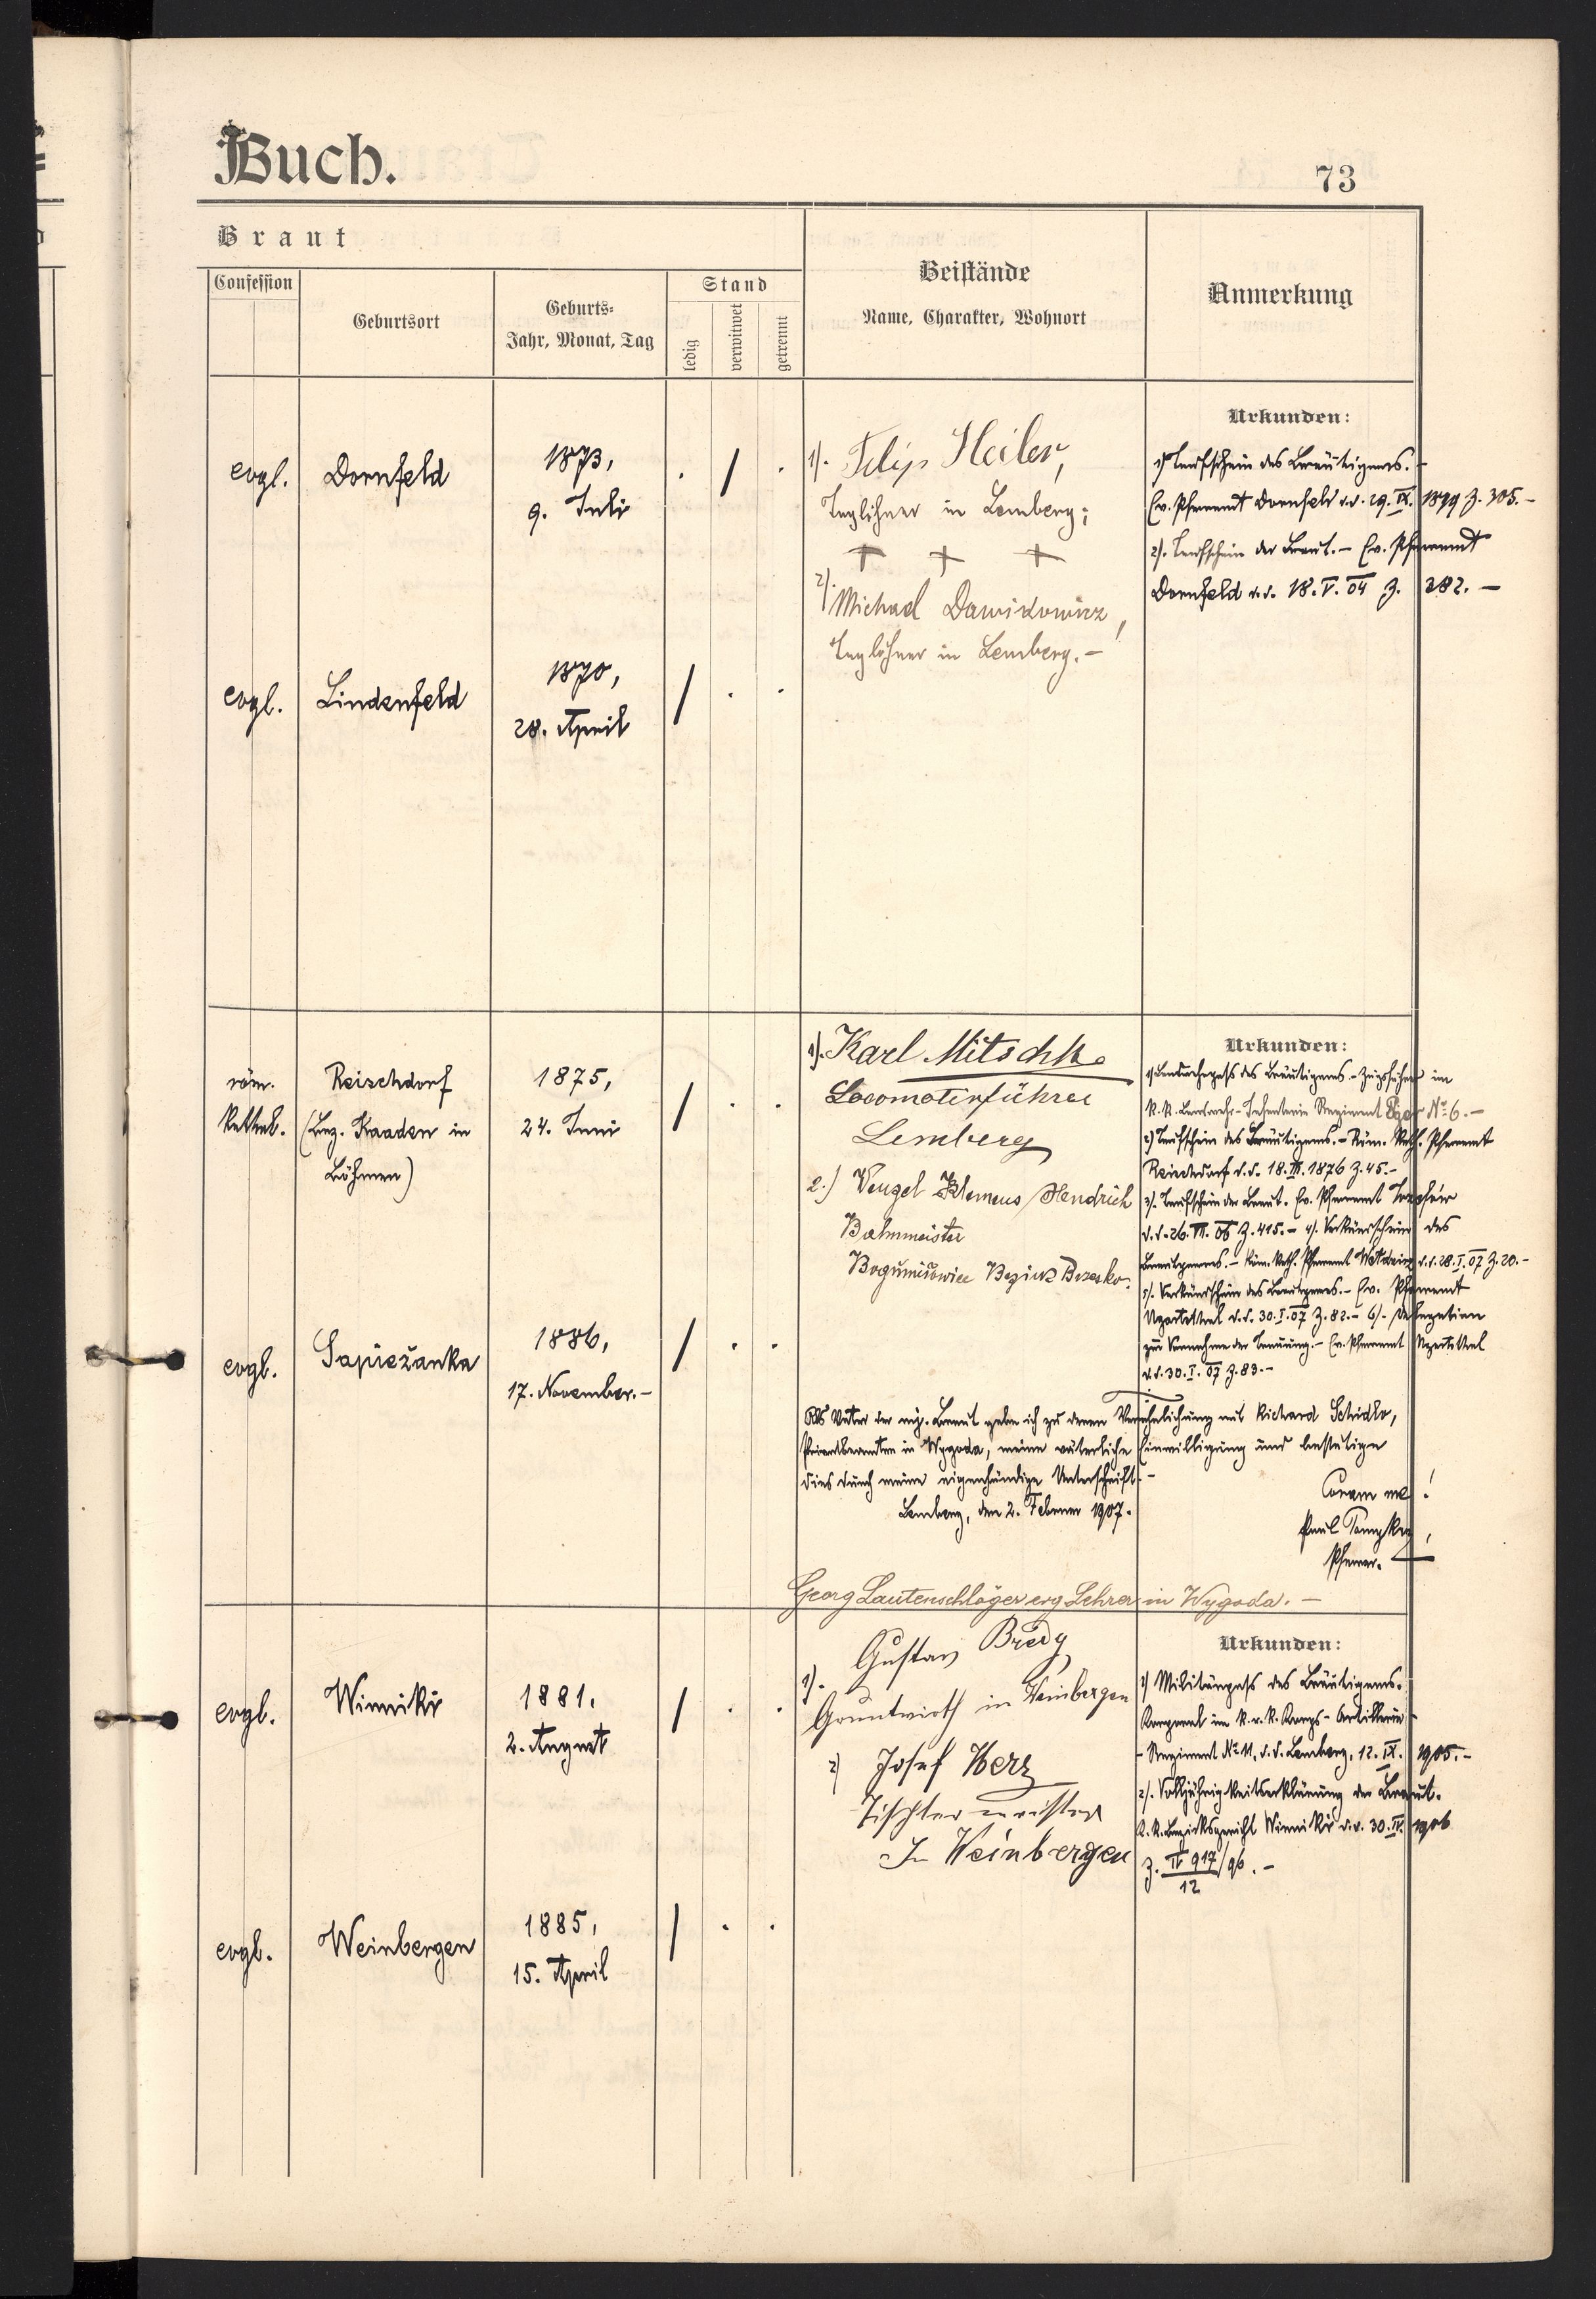 Buch.
73
Braut
Confession
Geburtsort
Geburts-
Jahr, Monat, Tag
Stand
ledig
verwitwet
getrennt
Beistände
Name, Charakter, Wohnort
Anmerkung
evgl.
Dornfeld
1873,
9. Juli
1). Filip Heiler,
Taglöhner in Lemberg;
+ + +
2). Michael Dawidowicz,
Taglöhner in Lemberg. –
Urkunden:
1) Taufschein des Bräutigams. –
Ev. Pfarramt Dornfeld d.d. 29. IX. 1899 Z. 305. –
2). Taufschein der Braut. – Ev. Pfarramt
Dornfeld d.d. 18. V. 04 Z. 282. –
evgl.
Lindenfeld
1870,
28. April
röm.
kathol.
Reischdorf
(Bez. Kaaden in
Böhmen)
1875,
24. Juni
1). Karl Mitschke
Locomotivführer
Lemberg
2.) Wenzel Klemens Hendrich
Bahnmeister
Bogumiłowice Bezirk Brzesko.
Urkunden:
1) Landwehrpass des Bräutigams. – Zugsführer im
k.k. Landwehr-Infanterie Regiment Eger No 6. –
2) Taufschein des Bräutigams. – Röm. kath. Pfarramt
Reischdorf d.d. 18. III. 1876 Z. 45. –
3). Taufschein der Braut. Ev. Pfarramt Josefów
d.d. 26. VI. 06 Z. 415. – 4). Verkündschein des
Bräutigams. – Röm. kath. Pfarramt d.d. 28. I. 07 Z. 20. –
5). Verkündschein des Bräutigams. – Ev. Pfarramt
Ugartsthal d.d. 30. I. 07 Z. 82. – 6). Delegation
zur Vornahme der Trauung. – Ev. Pfarramt Ugartsthal
d.d. 30. I. 07 Z. 83. –
evgl.
Sapieżanka
1886,
17. November. –
Als Vater der mj. Braut gebe ich zu deren Verehelichung mit Richard Schidlo,
Privatbeamten in Wygoda, meine väterliche Einwilligung und bestätige
dies durch meine eigenhändige Unterschrift. –
Lemberg, den 2. Februar 1907.
Coram me!
Paul
Pfarrer.
Georg Lautenschläger evg Lehrer in Wygoda. –
evgl.
Winniki
1881,
2. August
1). Gustav Bredy
Grundwirth in Weinbergen
2) Josef Herz
Tischlermeister
In Weinbergen
Urkunden:
1) Militärpass des Bräutigams.
Korporal im k.u.k. Korps-Artillerie-
- Regiment No 11, d.d. Lemberg, 12. IX. 1905. –
2). Volljährigkeitserklärung der Braut.
K.k. Bezirksgericht Winniki d.d. 30. IV. 1906
Z. IV 917/96. –
12
evgl.
Weinbergen
1885,
15. April